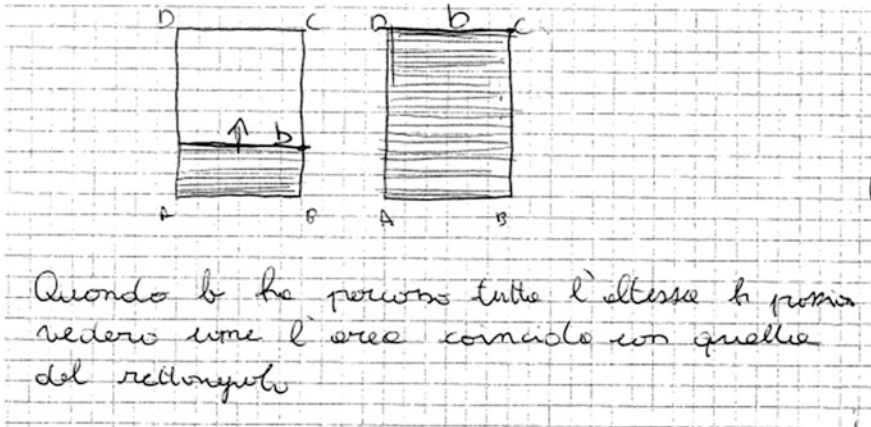 D C D b C
b
A B A B
Quando b ha percorso tutta l'altezza h posso
vedere come l'area coincida con quella
del rettangolo